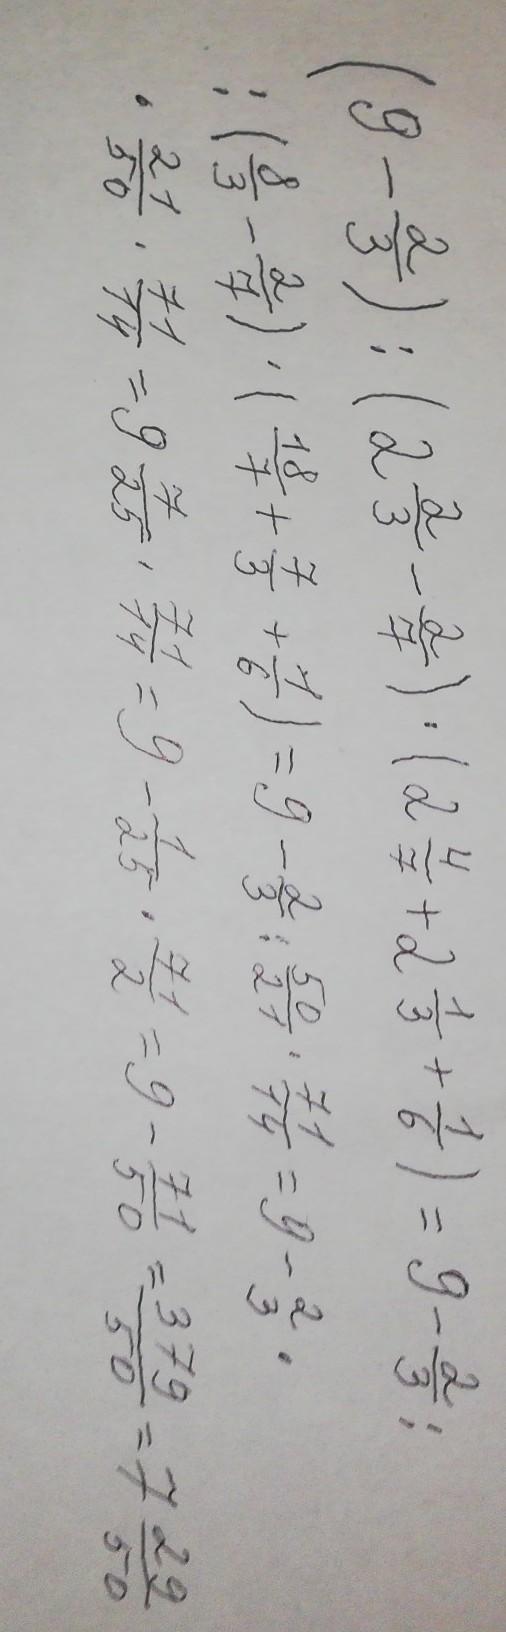 (9 - 2/3) : (2 2/3 - 2/7) · (2 4/7 + 2 1/3 + 1/6) = 9 - 2/3 :
: (8/3 - 2/7) · (18/7 + 7/3 + 1/6) = 9 - 2/3 : 50/21 · 71/14 = 9 - 2/3 ·
· 21/50 · 71/14 = 9 7/25 · 71/14 = 9 - 1/25 · 71/2 = 9 - 71/50 = 379/50 = 7 29/50